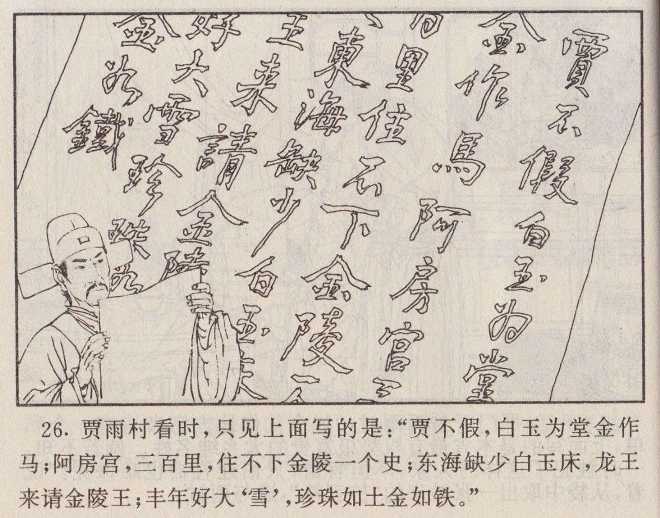 賈不假白玉为堂
金作馬阿房宫三
百里住不下金陵一
東海缺少白玉床
王来請金陵
好大雪珍珠如
金如鐵
26. 贾雨村看时，只见上面写的是：“贾不假，白玉为堂金作
马；阿房宫，三百里，住不下金陵一个史；东海缺少白玉床，龙王
来请金陵王；丰年好大‘雪’，珍珠如土金如铁。”